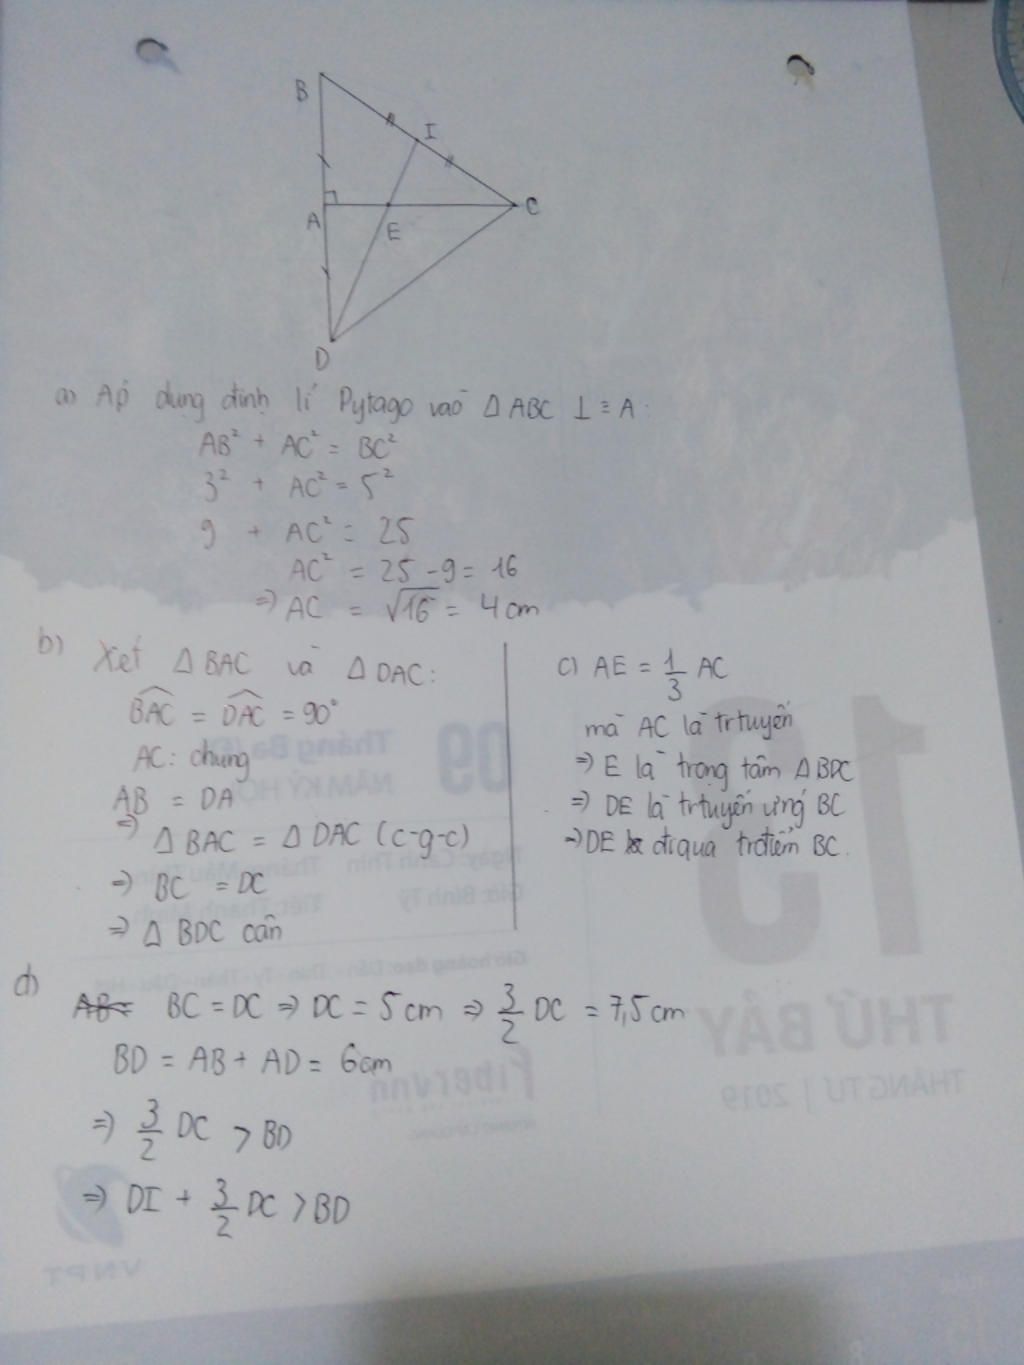 B
I
A
E
C
D
a) Áp dụng định lí Pytago vào Δ ABC ⊥ ≡ A:
AB² + AC² = BC²
3² + AC² = 5²
9 + AC² = 25
AC² = 25 - 9 = 16
=> AC = √16 = 4 cm
b) Xét Δ BAC và Δ DAC:
BAC = DAC = 90°
AC: chung
AB = DA
=> Δ BAC = Δ DAC (c-g-c)
=> BC = DC
=> Δ BDC cân
c) AE = 1/3 AC
mà AC là trtuyến
=> E là trọng tâm Δ BDC
=> DE là trtuyến ứng BC
=> DE đi qua trđiểm BC.
d)
AB = BC = DC => DC = 5 cm => 3/2 DC = 7,5 cm
BD = AB + AD = 6cm
=> 3/2 DC > BD
=> DI + 3/2 DC > BD
09
Tháng Ba
NĂM KỶ HỢI
13
THỨ BẢY
THÁNG TƯ | 2019
fibervnn
VNPT